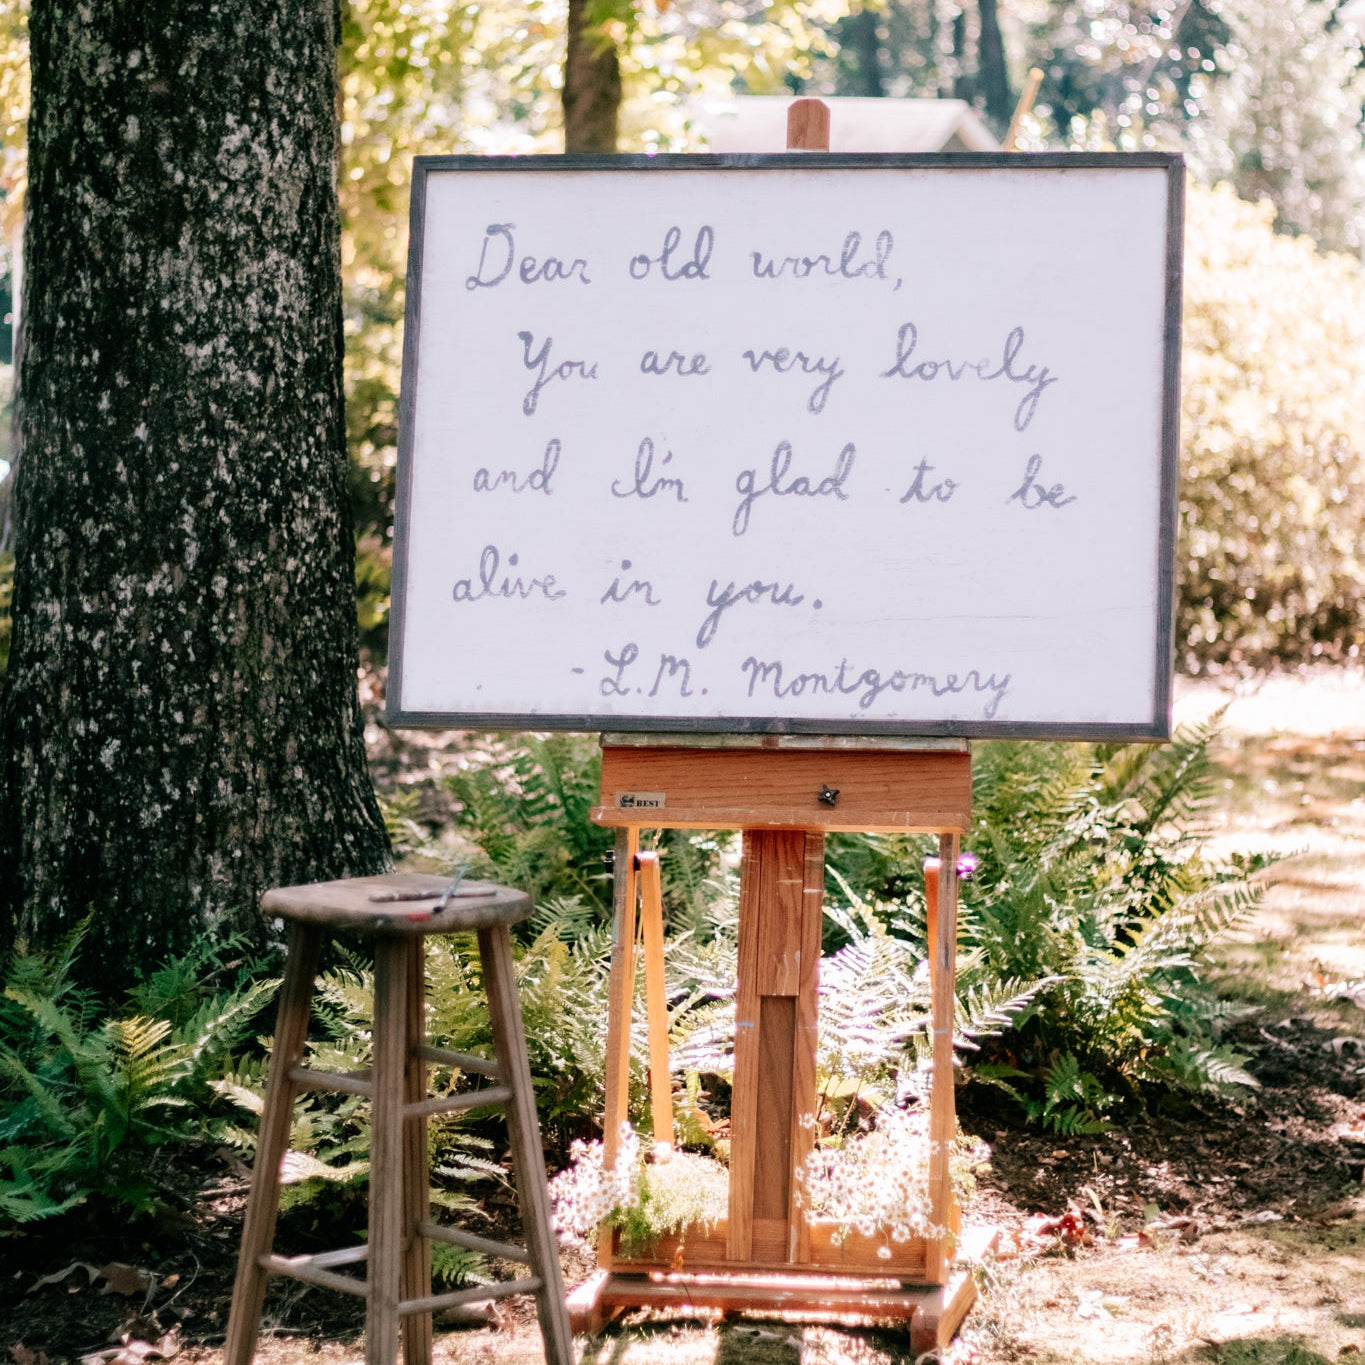 Dear old world,
You are very lovely
and I'm glad to be
alive in you.
- L.M. Montgomery
BEST